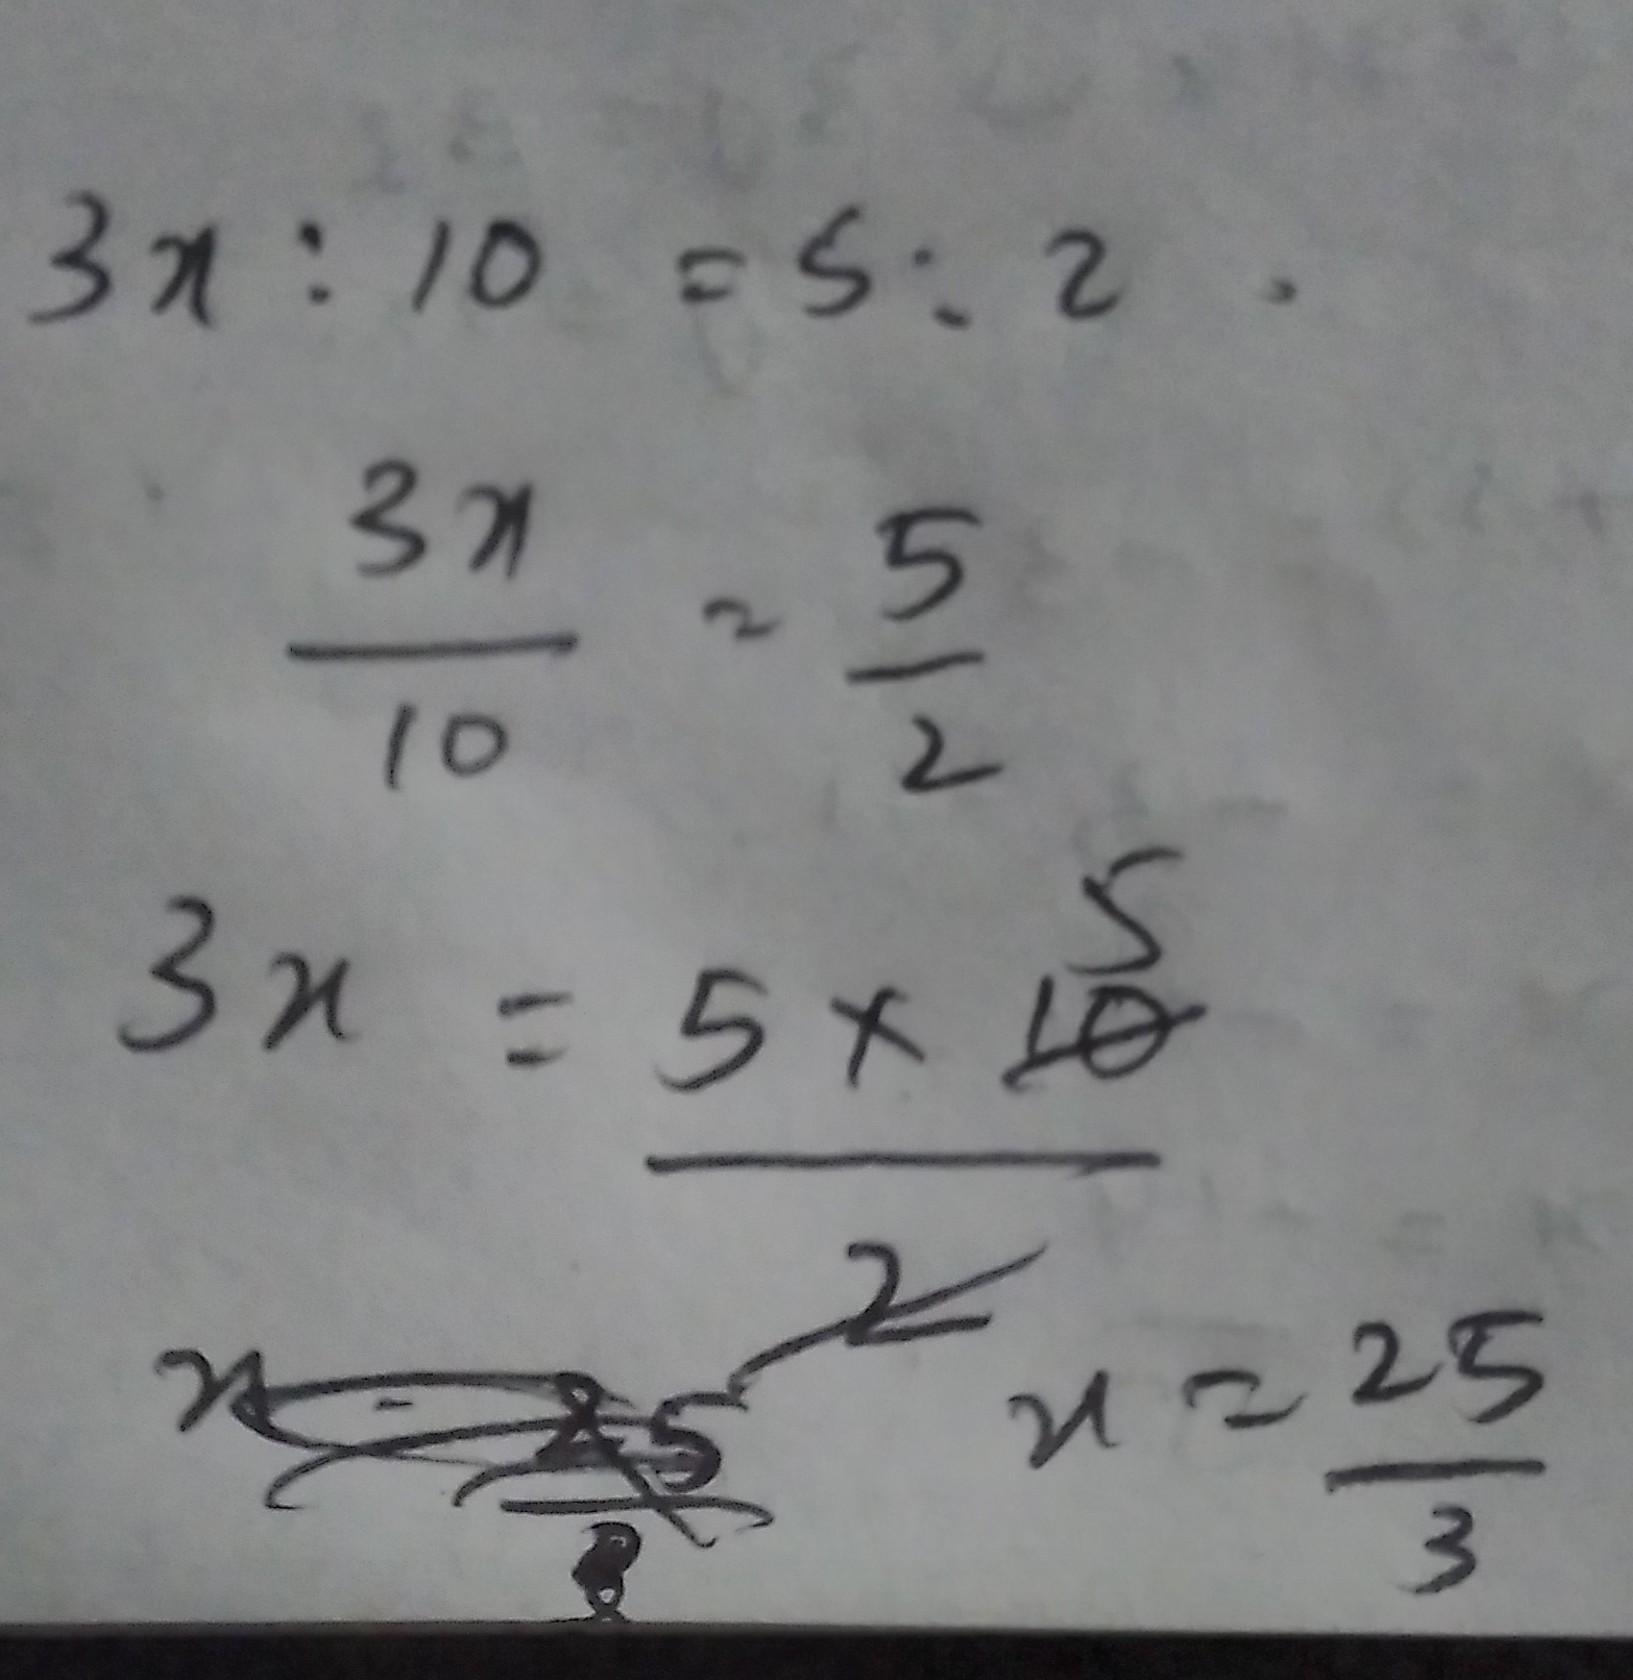 3x : 10 = 5 : 2 .
3x/10 = 5/2
3x = 5 × 10/2
5
x = 25/3